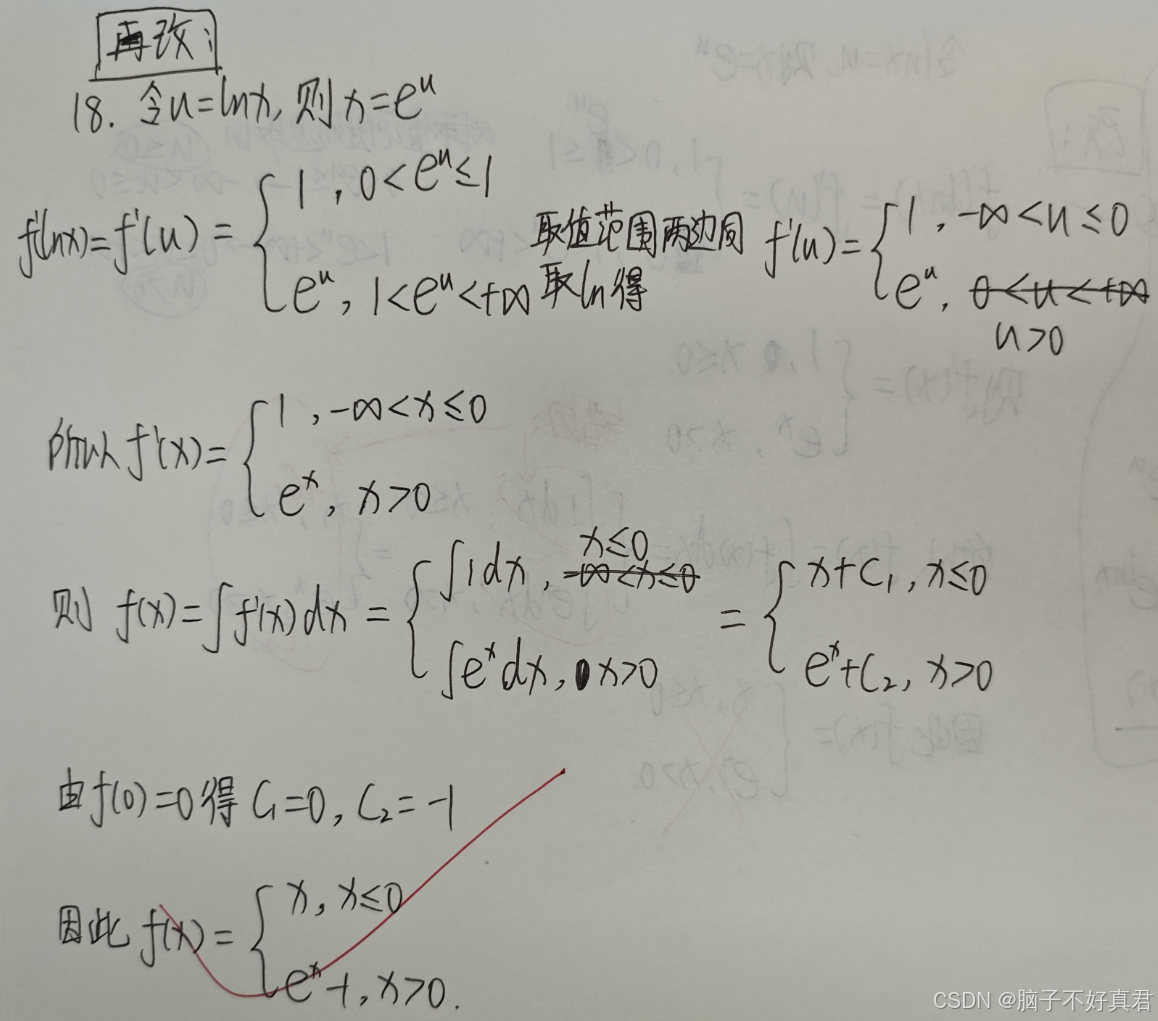 再改:
18. 令u=lnx, 则x=eᵘ
f'(lnx)=f'(u)={1, 0<eᵘ≤1
eᵘ, 1<eᵘ<+∞
取值范围两边同
取ln得
f'(u)={1, -∞<u≤0
eᵘ, 0<u<+∞
u>0
所以f'(x)={1, -∞<x≤0
eˣ, x>0
则 f(x)=∫f'(x)dx={∫1dx, -∞<x≤0 x≤0
∫eˣdx, x>0
={x+C₁, x≤0
eˣ+C₂, x>0
由f(0)=0得 C₁=0, C₂=-1
因此 f(x)={x, x≤0
eˣ-1, x>0.
CSDN @脑子不好真君